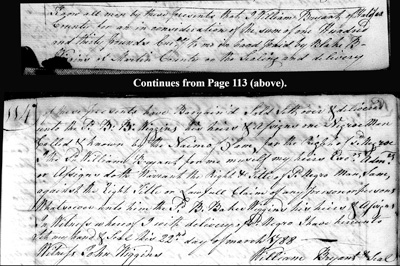 Know all men by these presents that I William Bryant of Halifax
County for and in consideration of the sum of one Hundred
and thirty Pounds to me in hand paid by Blake B
Wiggins of Martin County at the Sealing and delivery
Continues from Page 113 (above).
114
of these presents have Bargain'd Sold Set over & delivered
unto the Sd. B. B. Wiggins his heirs & Assigns one Negro Man
Called & known by the Name of Sam for the Right of Sd Negroe
I the Sd. William Bryant for me myself my heirs Exrs Admrs
or Assigns doth Warrant the Right & Title of Sd Negro Man Sam
against the Right Title or Lawfull Claim of any person or persons
Whatsoever unto him the Sd. B. Baker Wiggins his heirs & Assigns
In Witness whereof I with delivery of Sd Negro I have hereunto
Set my hand and Seal this 22nd day of march 1788
Witness John Wiggins
William Bryant Seal